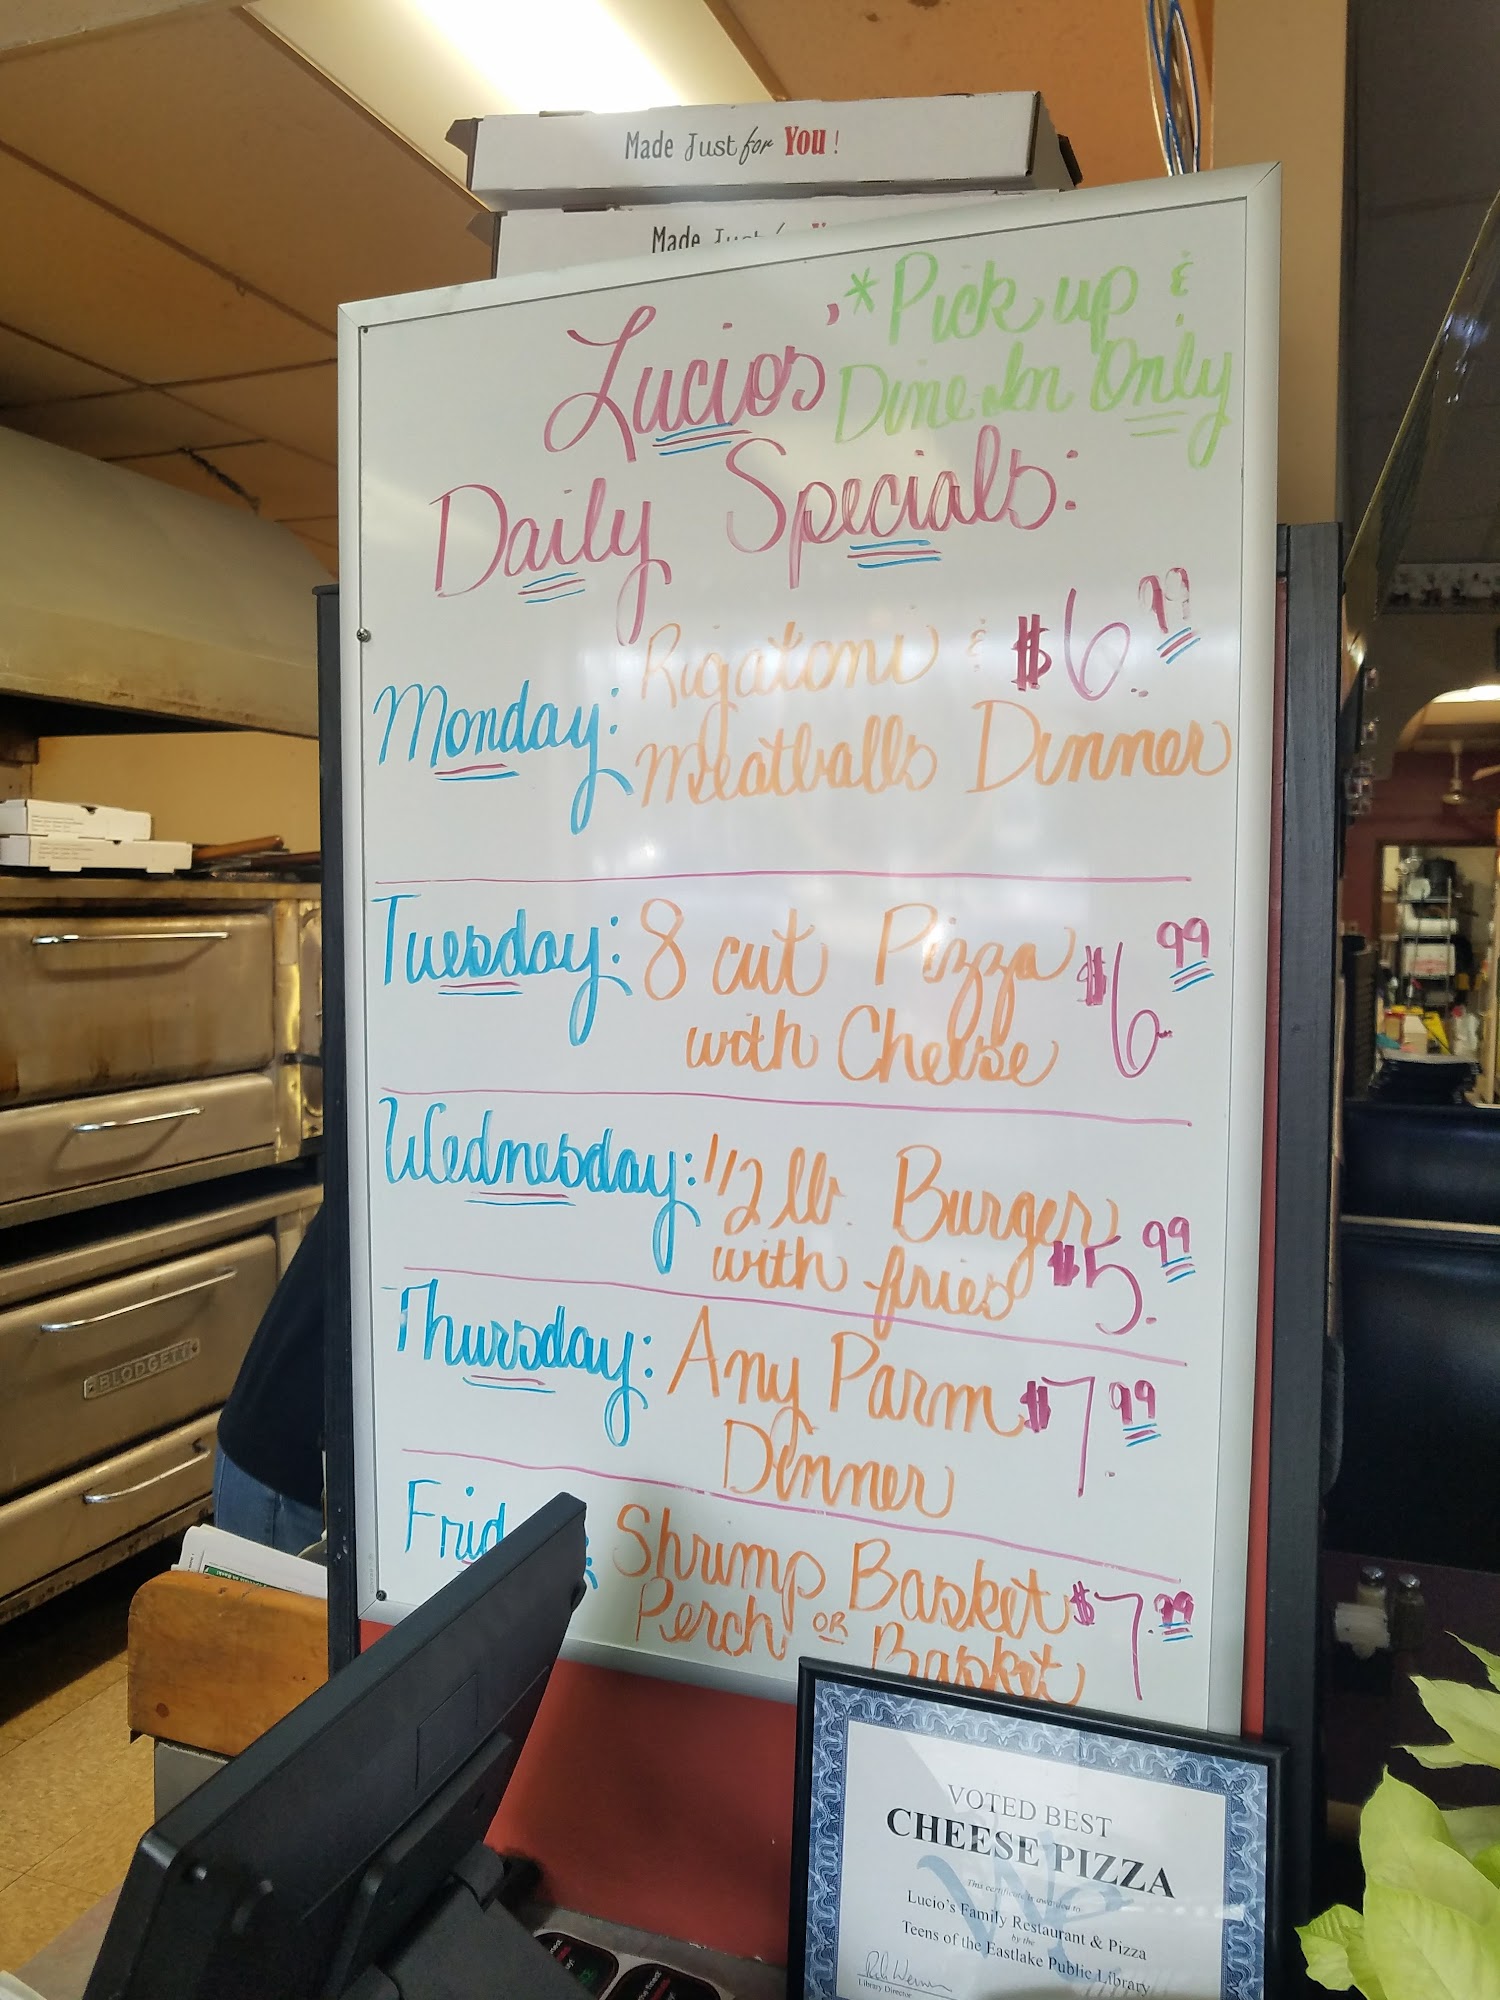 Made Just for You!
Made
Lucios'
*Pick up &
Dine In Only
Daily Specials:
Monday: Rigatoni & $6.99
Meatballs Dinner
Tuesday: 8 cut Pizza $6.99
with Cheese
Wednesday: 1/2 lb. Burger
with fries $5.99
Thursday: Any Parm $7.99
Dinner
Frid
Shrimp Basket $7.99
Perch OR Basket
BLODGETT
VOTED BEST
CHEESE PIZZA
This certificate is awarded to
Lucio's Family Restaurant & Pizza
by the
Teens of the Eastlake Public Library
Library Director